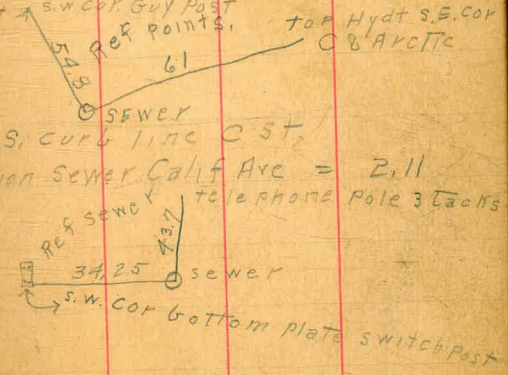 s.w. cor Guy Post
Ref points.
top Hydt S.E. Cor
C & Arctic
54.8
61
SEWER
S. curb line C St.
on Sewer Calif Ave = 2.11
telephone Pole 3 tacks
Ref sewer
43.7
34.25
sewer
s.w. cor bottom plate switch post